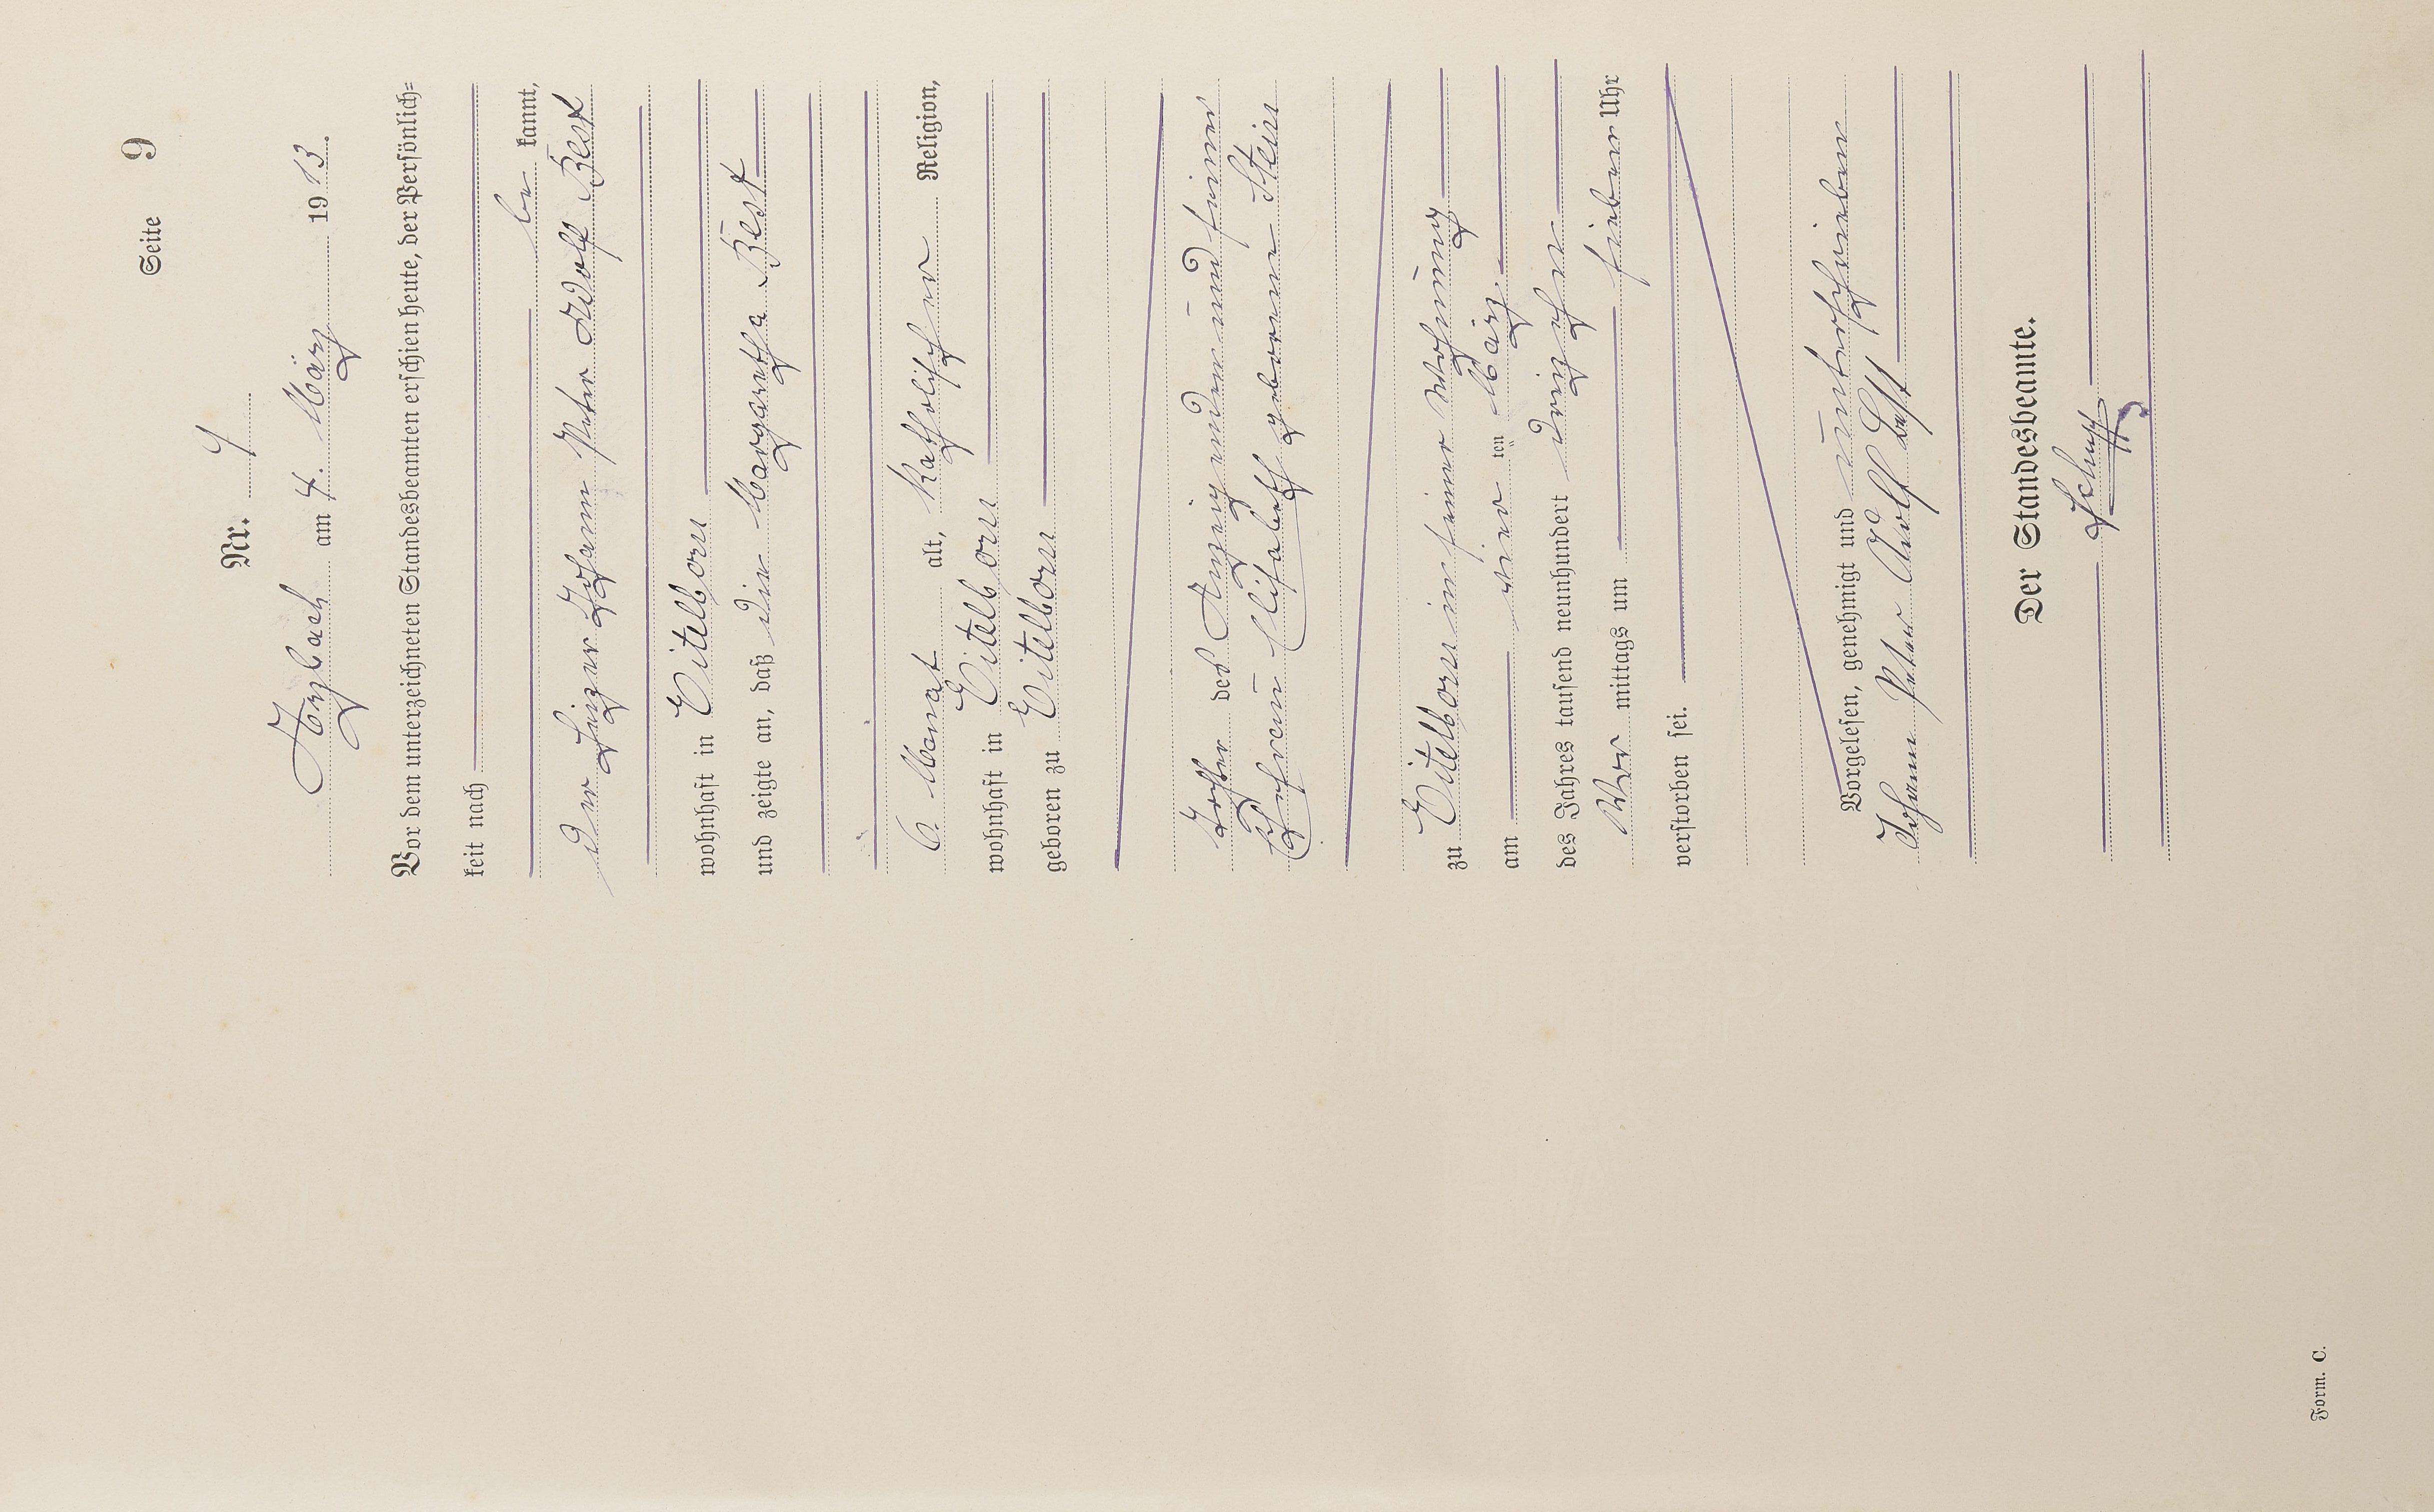 Seite 9
Nr. 7
Arzbach am 4. März 1913.
Vor dem unterzeichneten Standesbeamten erschien heute, der Persönlich=
keit nach
be kannt,
der Johann Peter Adolf Best
wohnhaft in Eitelborn
und zeigte an, daß die Margaretha Best
6 Monat alt, katholischer Religion,
wohnhaft in Eitelborn
geboren zu Eitelborn
Tochter des Anzeigenden und seiner
Ehefrau Elisabeth geborene Stein
zu Eitelborn in seiner Wohnung
am vier ten März
des Jahres tausend neunhundert dreizehn
Vor mittags um sieben Uhr
verstorben sei.
Vorgelesen, genehmigt und unterschrieben
Johann Peter Adolf Best
Der Standesbeamte.
Form. C.